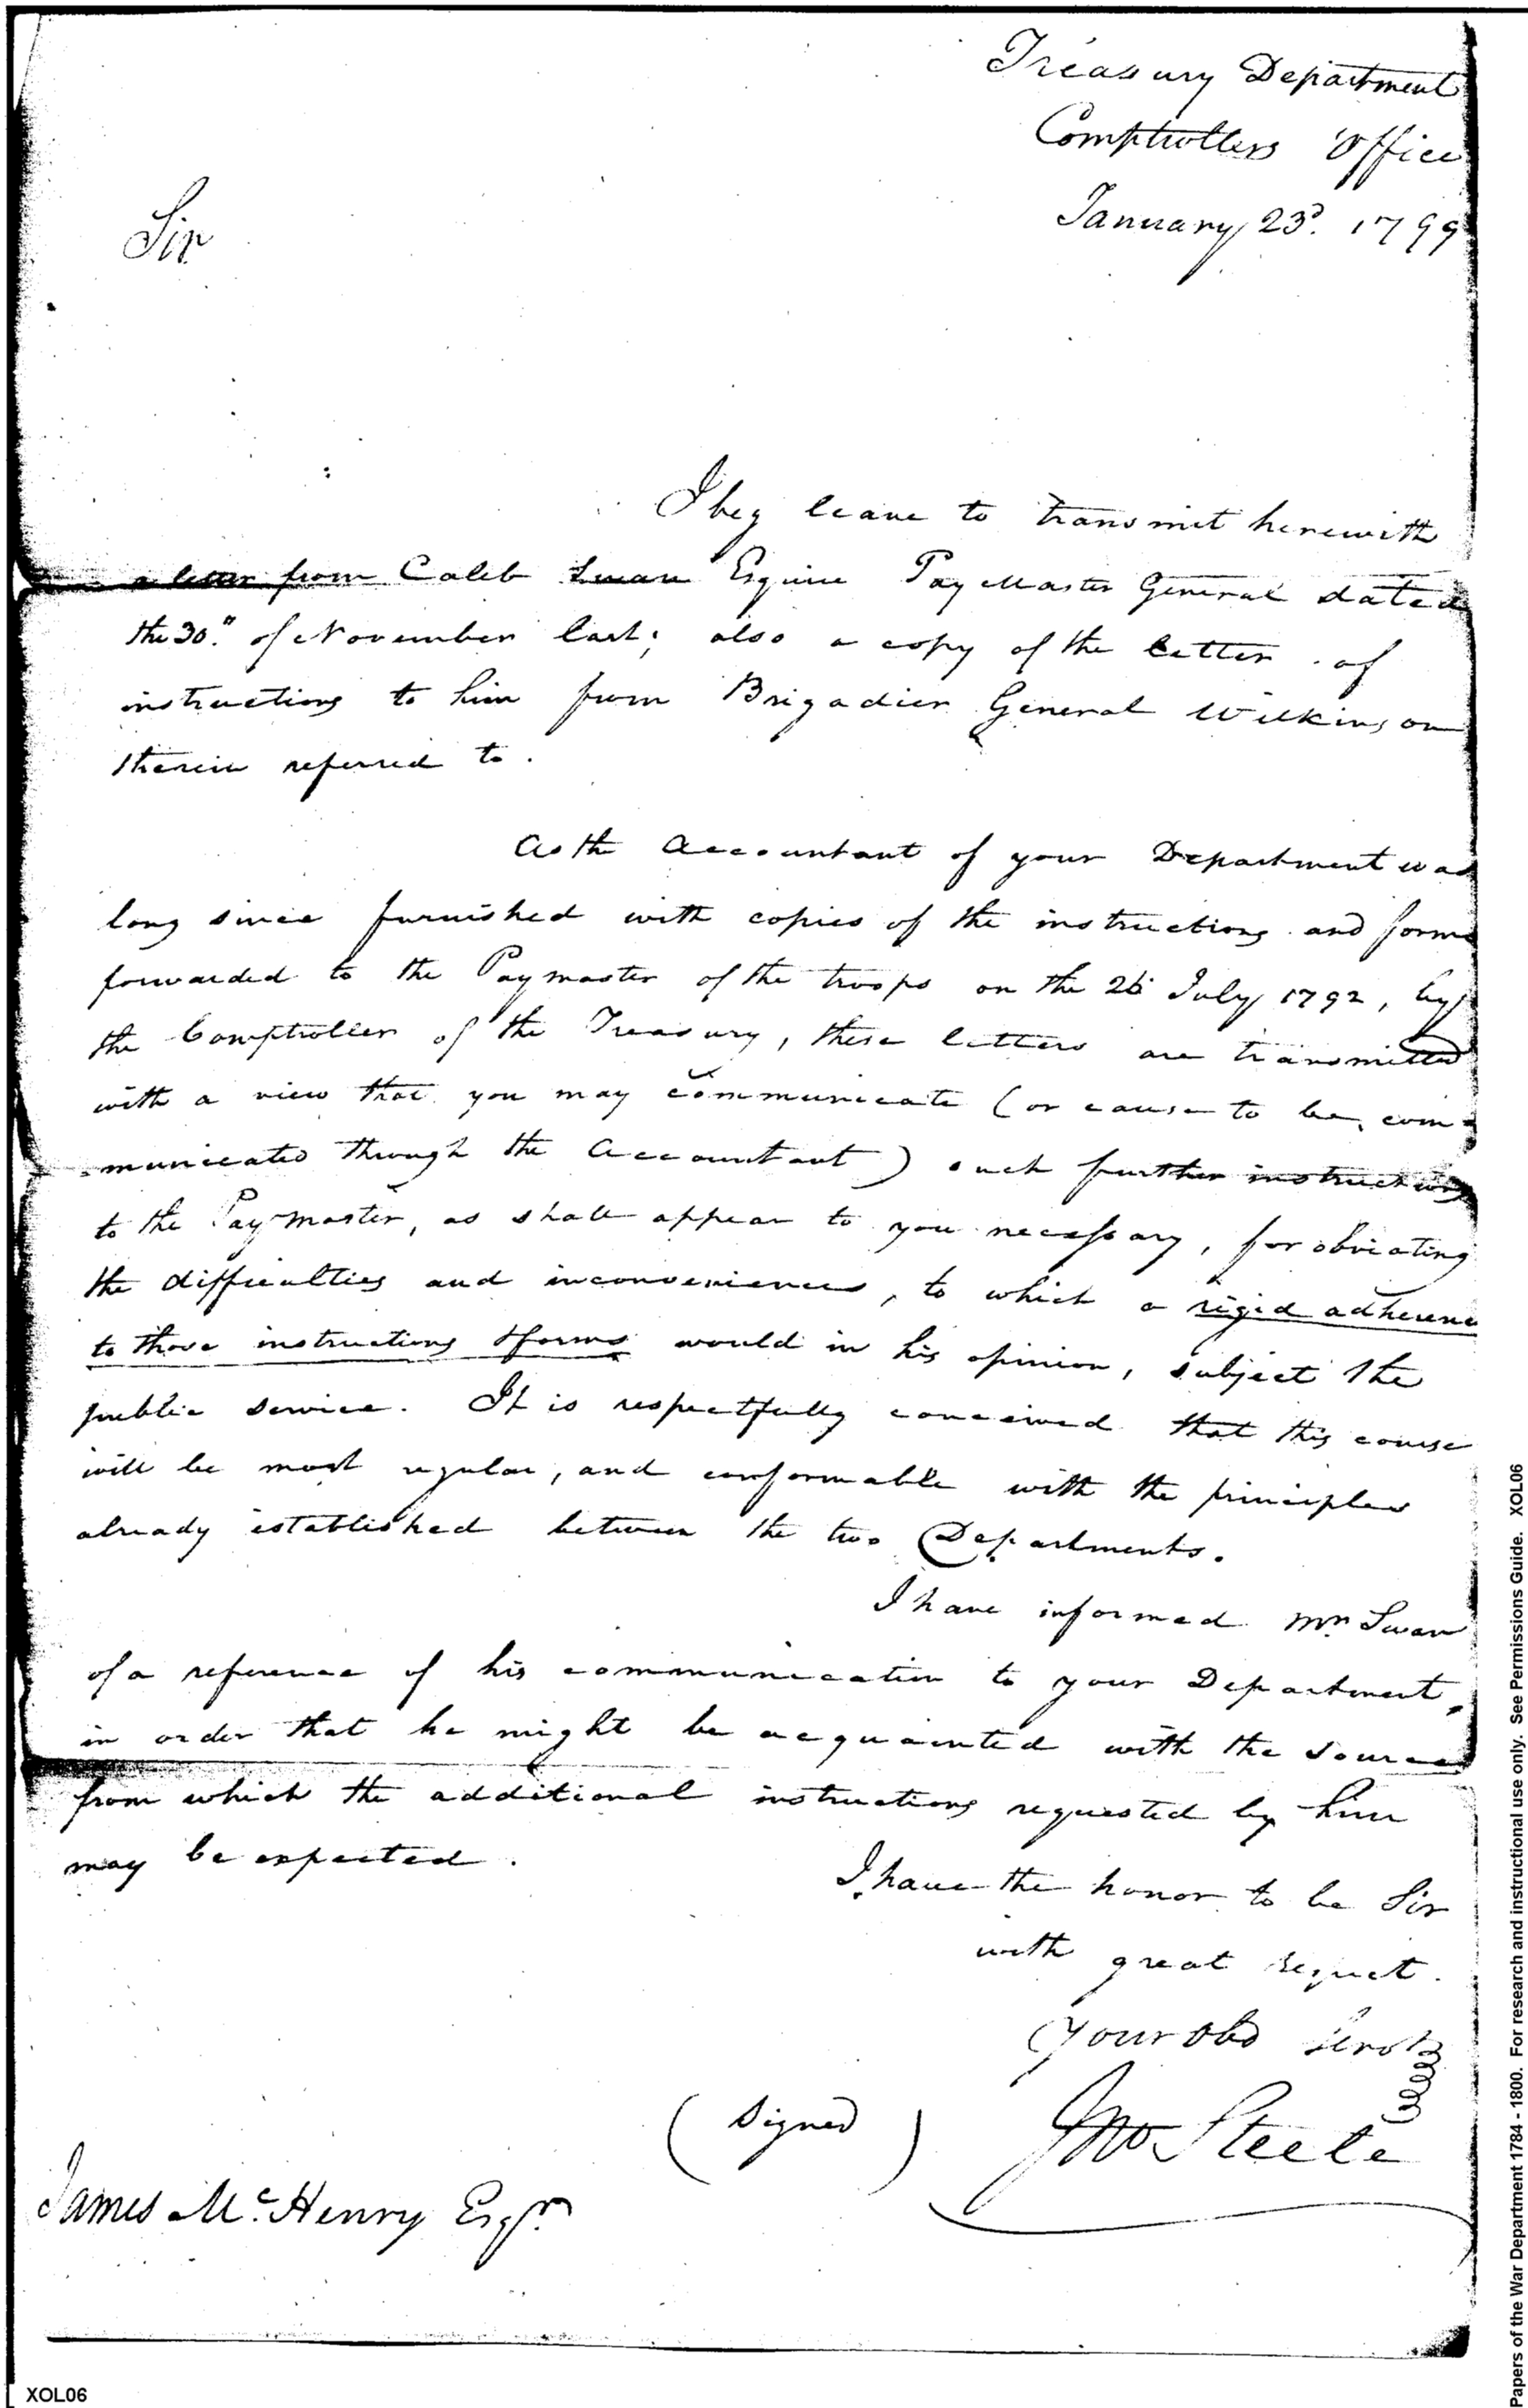 Treasury Department
Comptrollers Office
January 23d. 1799
Sir
I beg leave to transmit herewith
a letter from Caleb Swan Esquire Pay Master General dated
the 30.th of November last; also a copy of the letter of
instructions to him from Brigadier General Wilkinson
therein referred to.
As the Accountant of your Department was
long since furnished with copies of the instructions and forms
forwarded to the Paymaster of the troops on the July 1792, by
the Comptroller of the Treasury, these letters are transmitted
with a view that you may communicate (or cause to be com-
-municated through the Accountant) such further instructions
to the Paymaster, as shall appear to you necessary, for obviating
the difficulties and inconveniences, to which a rigid adherence
to those instructions & forms would in his opinion, subject the
public service. It is respectfully conceived that this course
will be most regular, and conformable with the principles
already established between the two Departments.
I have informed Mr. Swan
of a reference of his communication to your Department,
in order that he might be acquainted with the source
from which the additional instructions requested by him
may be expected.
I have the honor to be Sir
with great respect.
Your Obd Servt
(Signed) Jno Steele
James McHenry Esqr.
XOL06
Papers of the War Department 1784 - 1800. For research and instructional use only. See Permissions Guide. XOL06